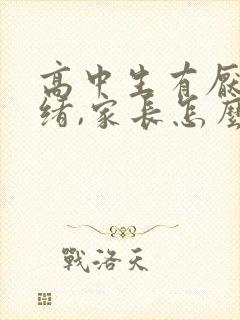 高中生有厭
緒,家長怎麼
戰洛天